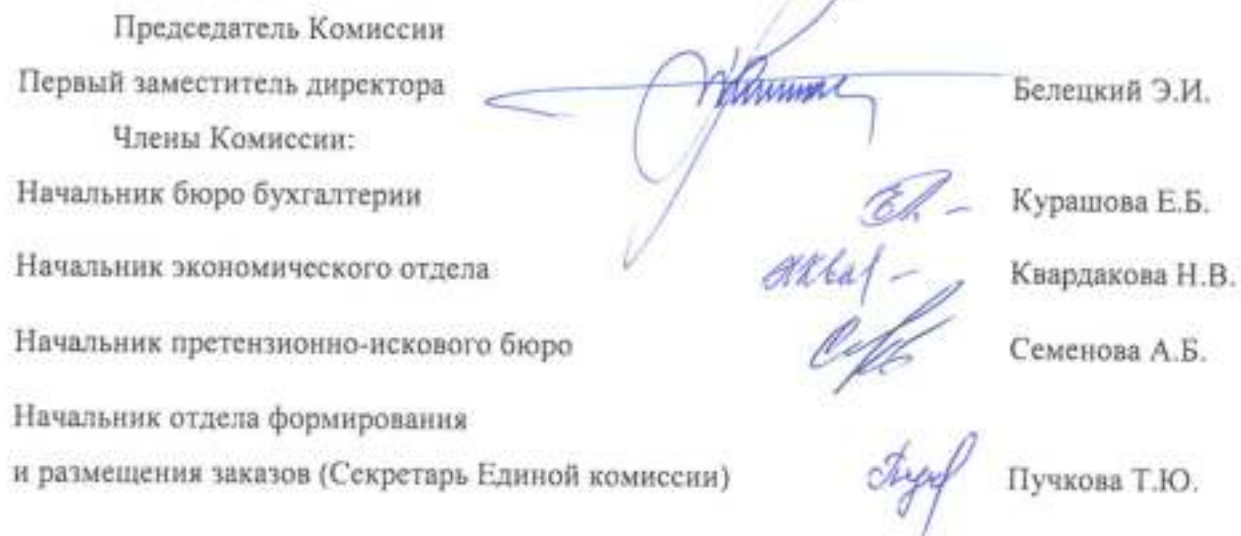 Председатель Комиссии
Первый заместитель директора Белецкий Э.И.
Члены Комиссии:
Начальник бюро бухгалтерии Курашова Е.Б.
Начальник экономического отдела Квардакова Н.В.
Начальник претензионно-искового бюро Семенова А.Б.
Начальник отдела формирования
и размещения заказов (Секретарь Единой комиссии) Пучкова Т.Ю.